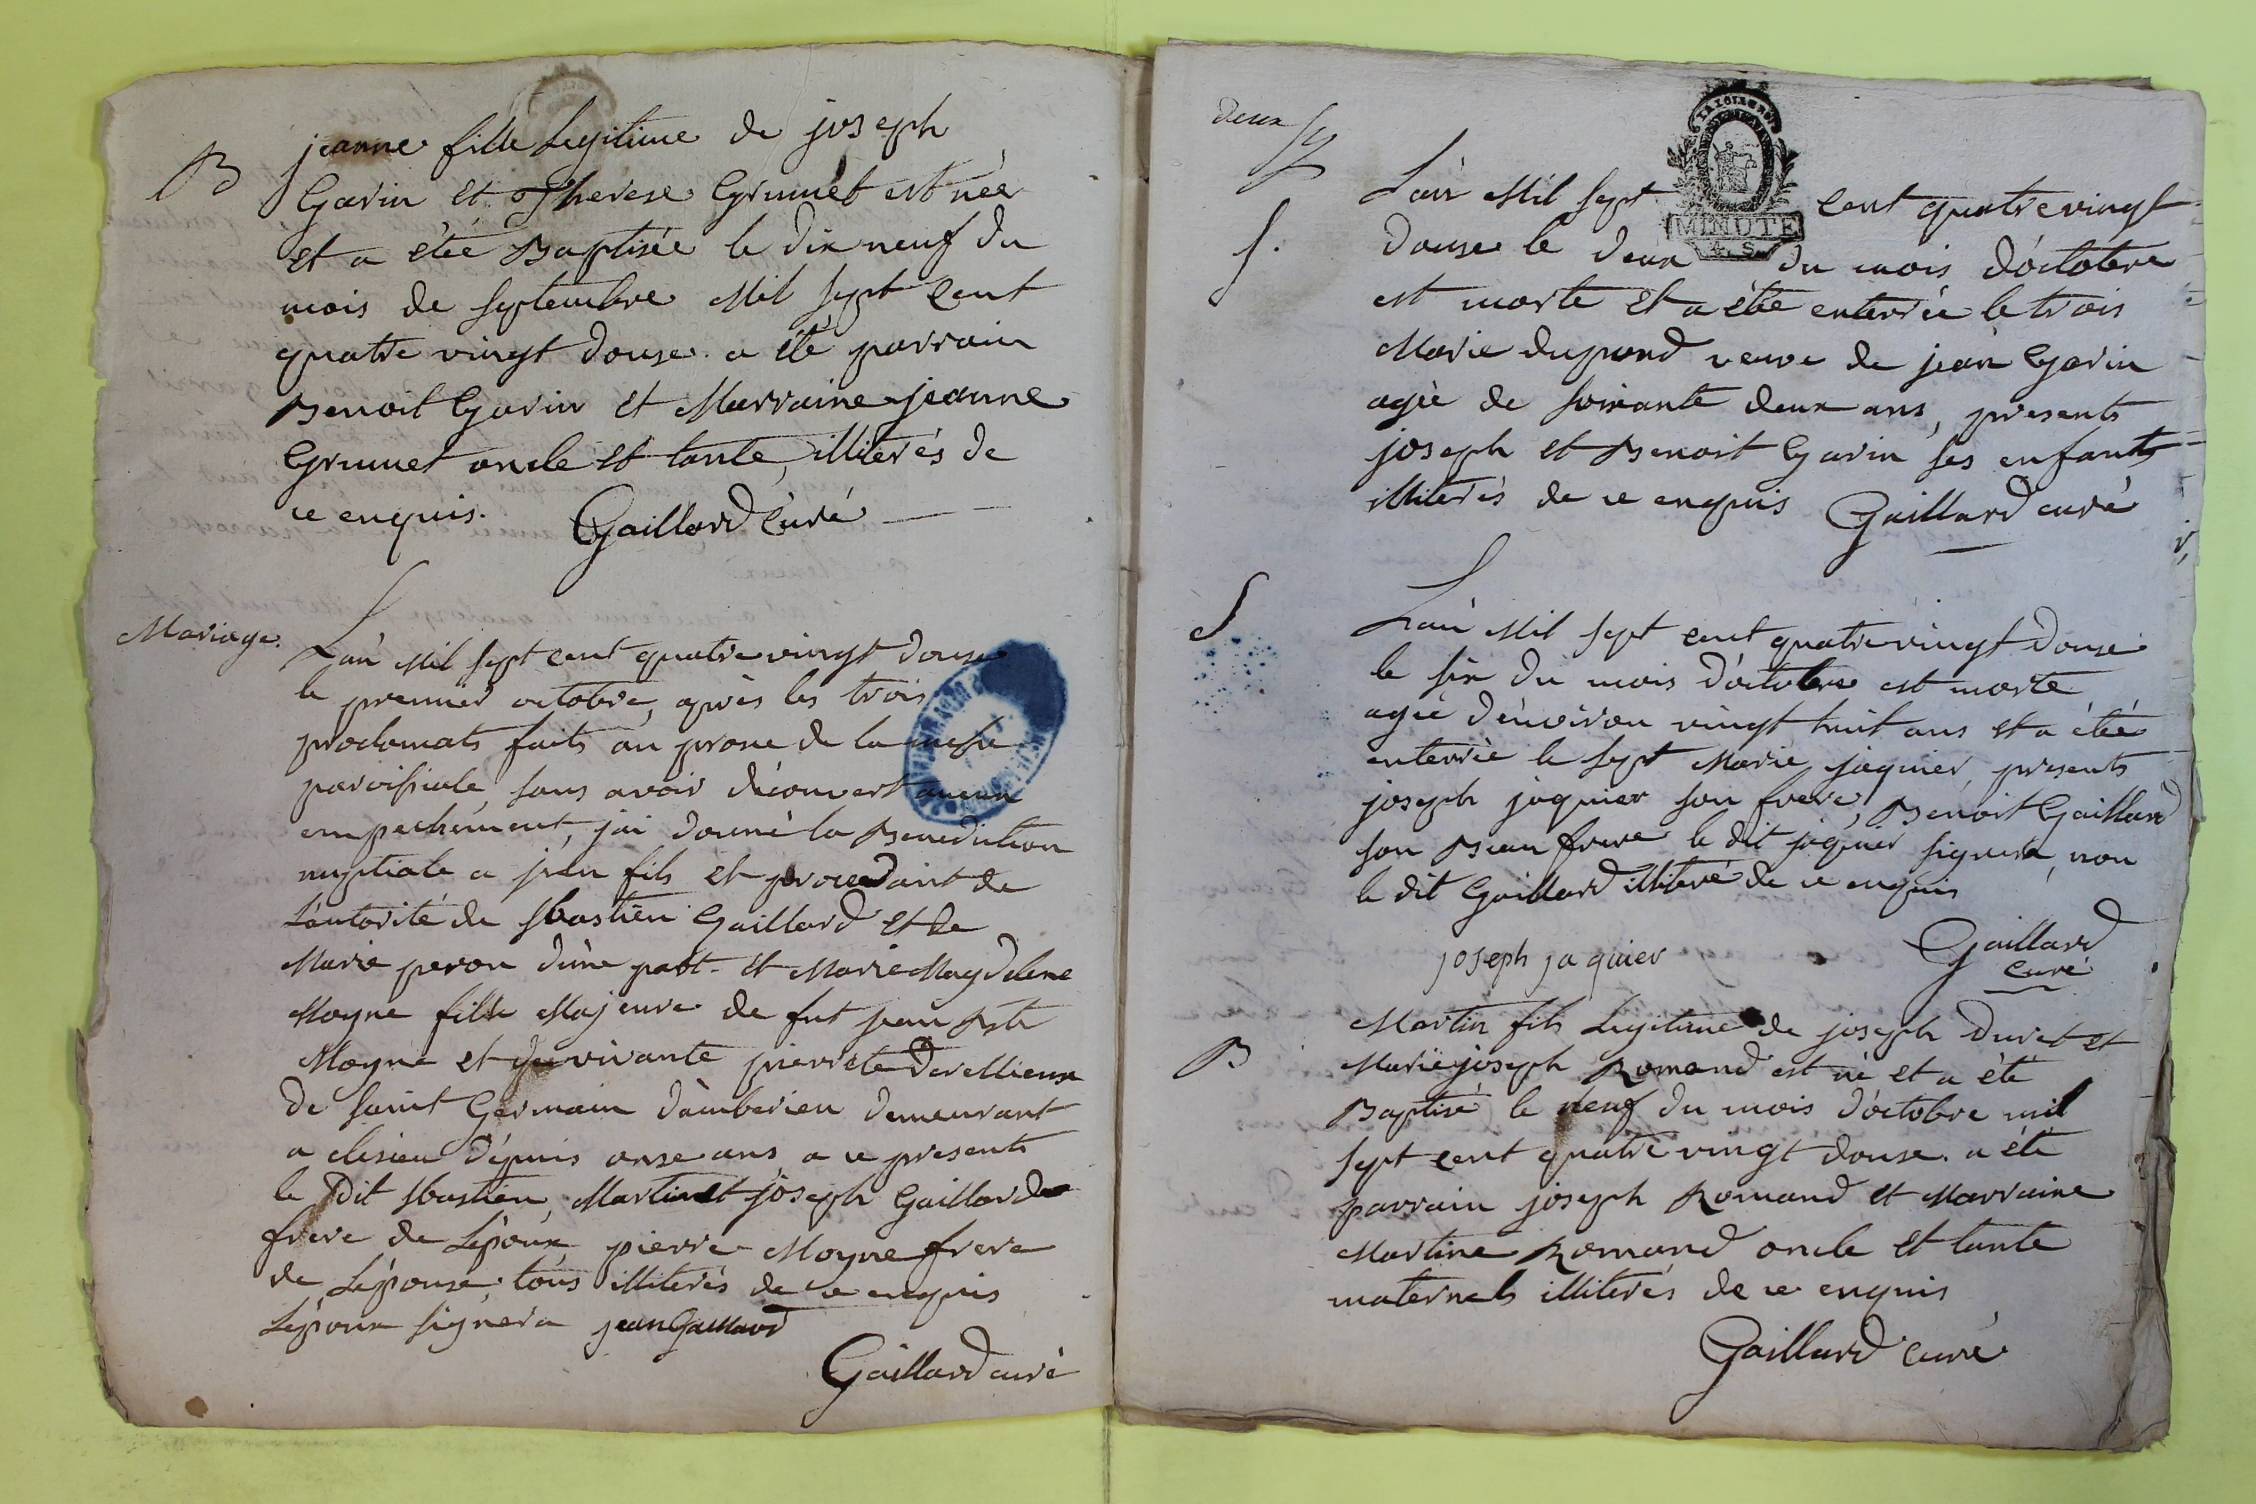 B
jeanne fille Legitime de joseph
Garin et Therese Grumet est née
et a étée Baptisée le dix neuf du
mois de septembre Mil sept Cent
quatre vingt douse. a été parrain
Benoit Garin et Marraine jeanne
Grumet oncle et tante, illiterés de
ce enquis. Gaillard Curé
Mariage.
L'an Mil sept cent quatre vingt douse
le premier octobre, après les trois
proclomats faits au prone de la messe
paroissiale, sans avoir découvert aucun
empechement, jai donné la Benediction
nuptiale a jean fils et procedant de
L'autorité de sbastien Gaillard et de
Marie peron d'une part et Marie Magdelene
Moyne fille Majeure de fut jean Bte
Moyne et de vivante pierrete
de saint Germain d'ambérieu demeurant
a depuis onse ans a ce presents
le dit sbastien, Martin et joseph Gaillard
frere de L'epoux pierre Moyne frere
de L'épouse, tous illiterés de ce enquis
L'epoux signera jean Gaillard
Gaillard curé
deux
L'an Mil sept cent quatre vingt
MINUTE
S.
douse le deux du mois d'octobre
est morte et a étée enterrée le trois
Marie dupond veuve de jean Garin
agée de soixante deux ans, presents
joseph et Benoit Garin ses enfants
illiterés de ce enquis Gaillard curé
S
L'an Mil sept cent quatre vingt douse
le six du mois d'octobre est morte
agée d'environ vingt huit ans et a étée
enterrée le sept Marie jaquier, presents
joseph jaquier son frere, Benoit Gaillard
son Beau frere le dit jaquier signera, non
le dit Gaillard illiteré de ce enquis
joseph jaquier Gaillard
curé
B
Martin fils Legitime de joseph Duret et
Marie joseph Romand est né et a été
Baptisé le neuf du mois d'octobre mil
sept cent quatre vingt douse. a été
parrain joseph Romand et Marraine
Martine Romand oncle et tante
maternels illiterés de ce enquis
Gaillard curé